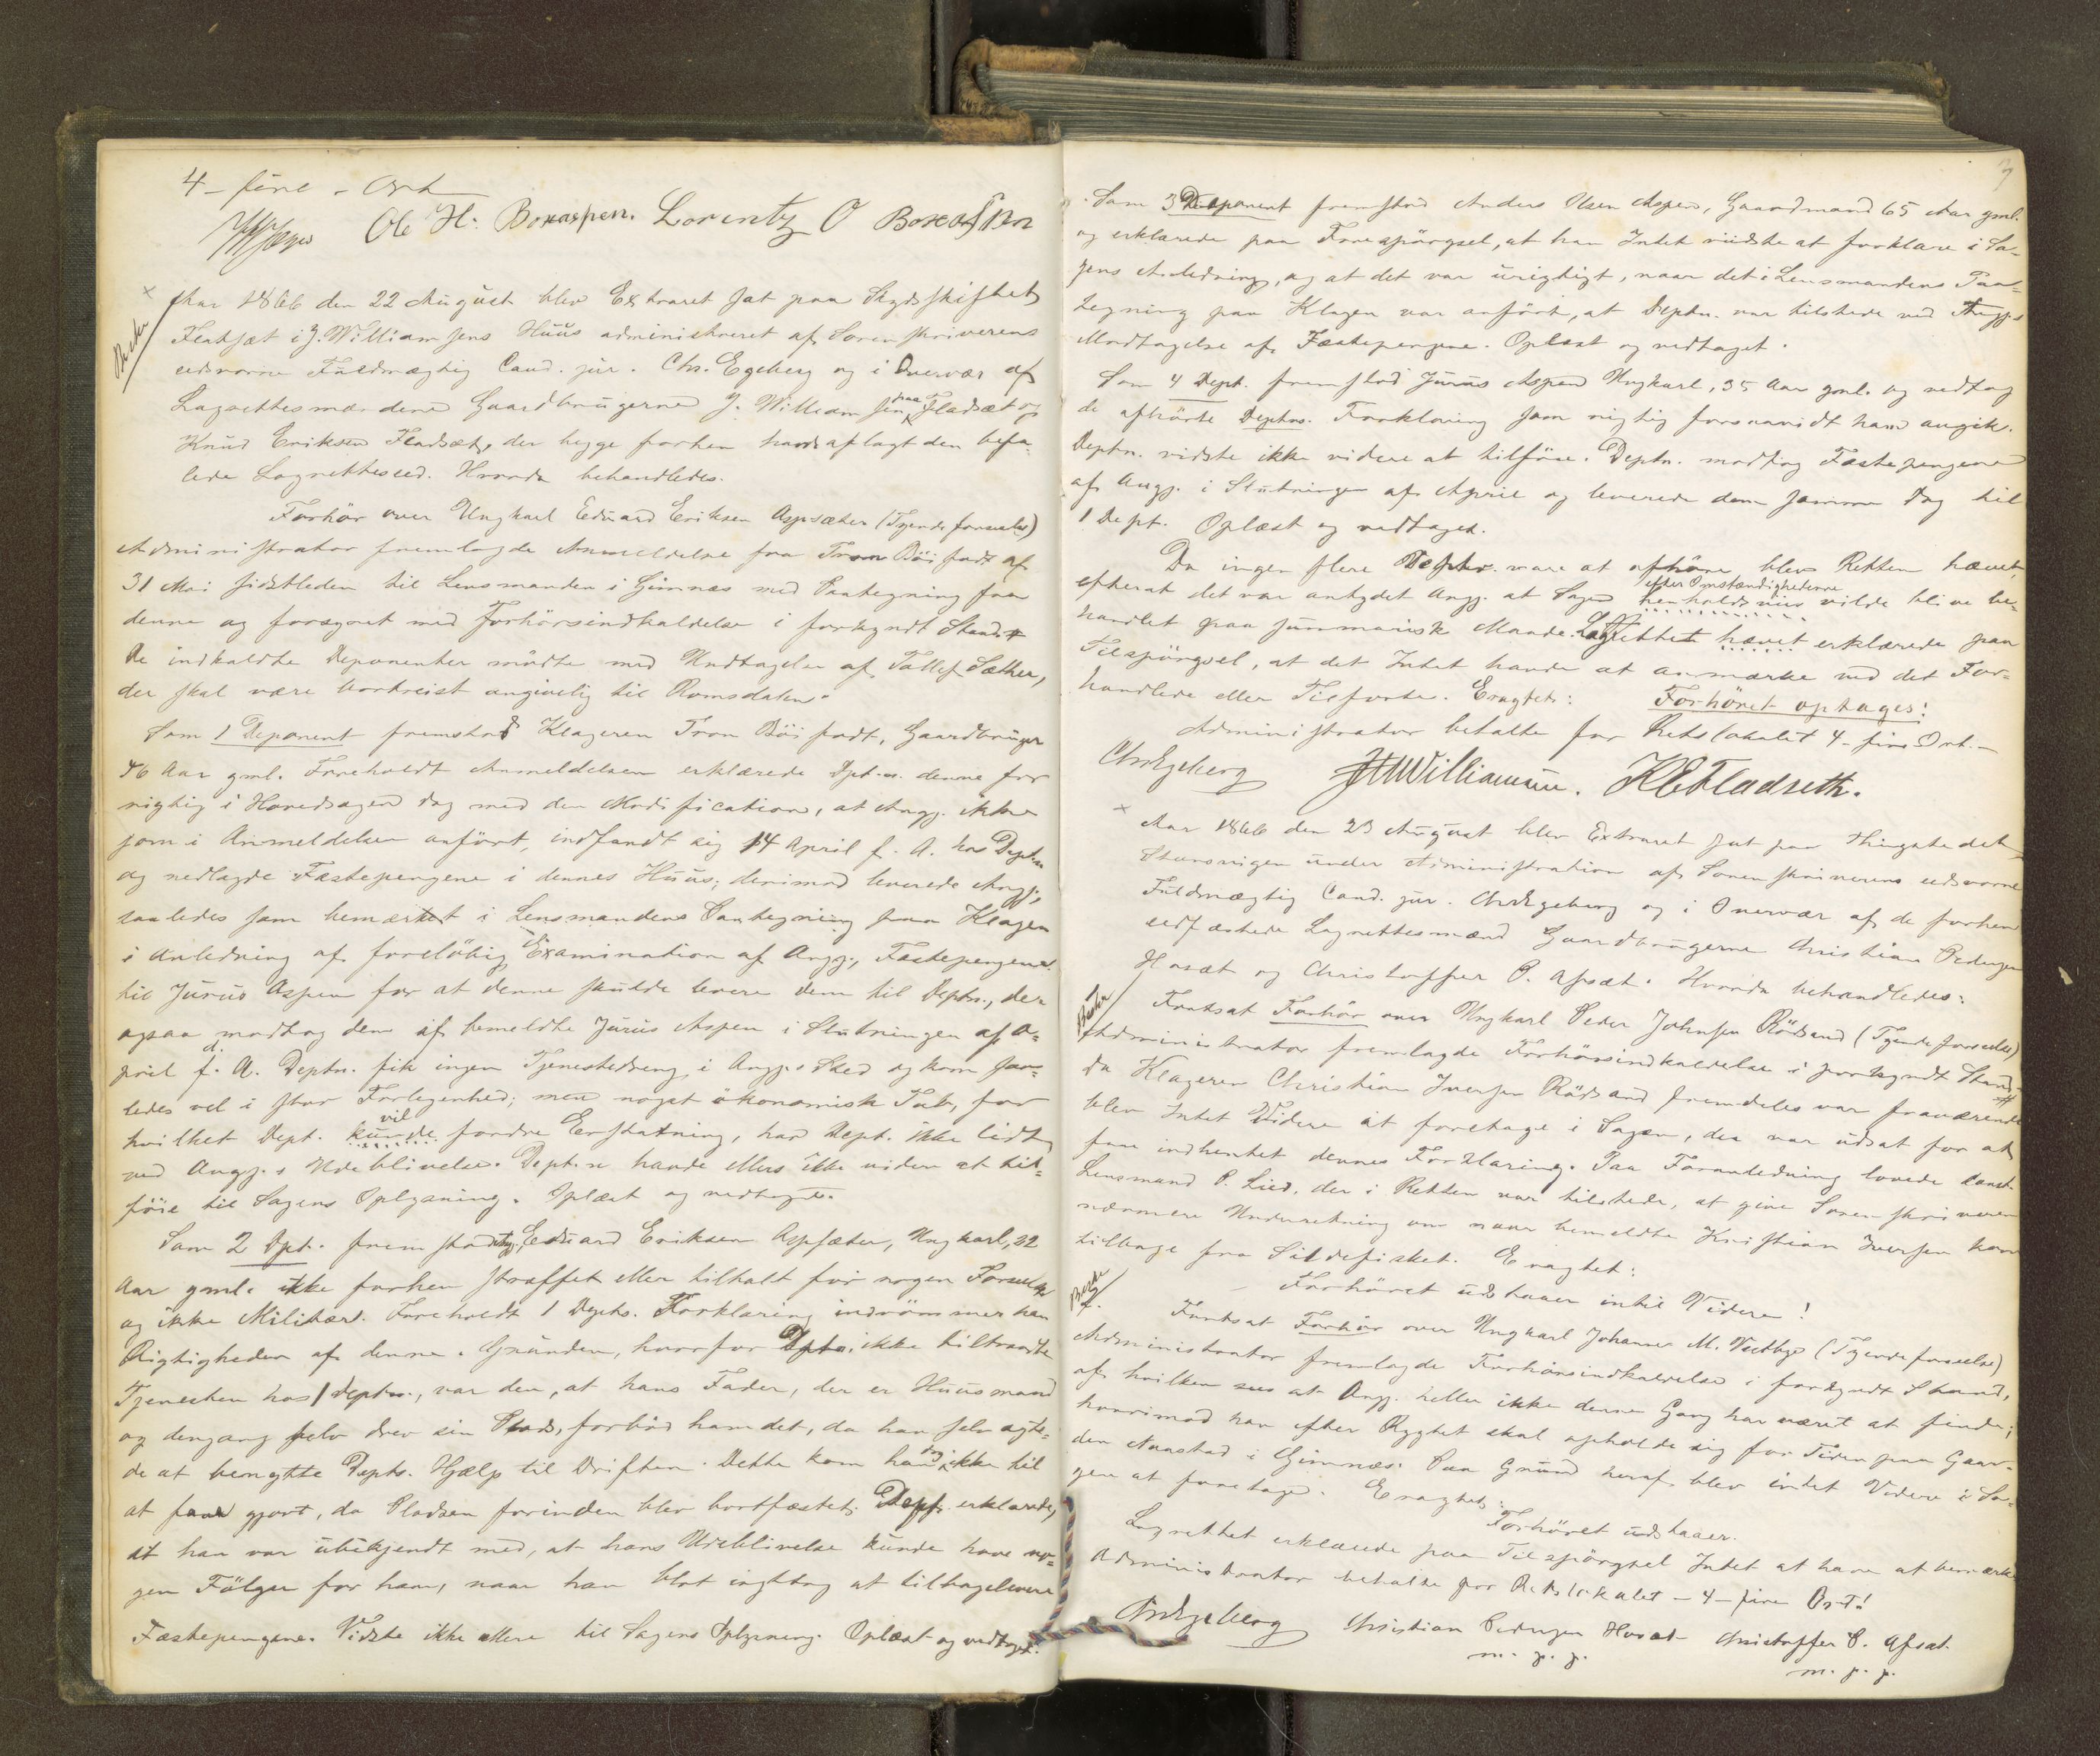 4 - fire - Ort
Ole H. Boxaspen. Lorentz O Boxaspen
Beskr
Aar 1866 den 22 August blev Extraret sat paa Skydsskiftet
Fladsæt i J. Williamsens Huus administreret af Sorenskriverens
edsvorne Fuldmægtig Cand. jur. Chr. Egeberg og i Overvær af
Lagrettesmændene Gaardbrugerne J. Williamsen paa Fladsæt og
Knud Eriksen Fladsæt, der begge forhen havde aflagt den befa-
lede Lagrettesed. Hvorda behandledes.
Forhör over Ungkarl Eduard Eriksen Aspsæter (Tyende forseelse)
Administrator fremlagde Anmeldelse fra Tron Böifodt af
31 Mai sidstleden til Lensmanden i Gimnæs med Paategning fra
denne og forsynet med Forhörsindkaldelse i forkyndt Stand.
De indkaldte Deponenter mödte med Undtagelse af Tollef Sæther,
der skal være bortreist angivelig til Romsdalen.
Som 1 Deponent fremstod Klageren Tron Böifodt, Gaardbruger
46 Aar gml. Foreholdt Anmeldelsen erklærede Dpt.n. denne for
rigtig i Hovedsagen dog med den Modification, at Angj. ikke
som i Anmeldelsen anfört, indfandt sig 14 April f. A. hos Dept.n
og nedlagde Fæstepengene i dennes Huus; derimod leverede Angj.,
saaledes som bemærket i Lensmandens Paategning paa Klagen
i Anledning af forelöbig Examination af Angj., Fæstepengene
til Jurus Aspen for at denne skulde levere dem til Deptn., der
ogsaa modtog dem af bemeldte Jurus Aspen i Slutningen af A-
pril d. A. Deptn. fik ingen Tjenestedreng i Angj.s Sted og kom saa-
ledes vel i stor Forlegenhed; men noget ökonomisk Tab, for
hvilket Dept. kunde vil fordre Erstatning, har Dept. ikke lidt
ved Angj.s Udeblivelse. Dept.n havde ellers ikke videre at til-
föie til Sagens Oplysning. Oplæst og vedtaget.
Som 2 Dpt. fremstod Angj. Eduard Eriksen Aspsæter, Ungkarl, 32
Aar gml. ikke forhen straffet eller tiltalt for nogen Forseelse
og ikke Militær. Foreholdt 1 Depts. Forklaring indrömmer han
Rigtigheden af denne. Grunden, hvorfor Dptn. ikke tiltraadte
Tjenesten hos 1 Deptn., var den, at hans Fader, der er Huusmand
og dengang selv drev sin Plads, forböd ham det, da han selv agte-
de at benytte Depts. Hjælp til Driften. Dette kom han dog ikke til
at faae gjort, da Pladsen forinden blev bortfæstet. Dept. erklærede,
at han var ubekjendt med, at hans Udeblivelse kunde have no-
gen Fölger for ham, naar han blot iagttog at tilbagelevere
Fæstepengene. Vidste ikke mere til Sagens Oplysning. Oplæst og vedtaget.
7
Som 3 Deponent fremstod Anders Olsen Aspen, Gaardmand 65 Aar gml.
og erklærede paa Forespörgsel, at han Intet vidste at forklare i Sa-
gens Anledning, og at det var urigtigt, naar det i Lensmandens Paa-
tegning paa Klagen var anfört, at Deptn. var tilstede ved Angj.s
Modtagelse af Fæstepengene. Oplæst og vedtaget.
Som 4 Dept. fremstod Jurus Aspen Ungkarl, 35 Aar gml. og vedtog
de afhörte Deptns. Forklaring som rigtig forsaavidt ham angik.
Deptn. vidste ikke videre at tilföie. Deptn. modtog Fæstepengene
af Angj. i Slutningen af April og leverede dem samme Dag til
1 Dept. Oplæst og vedtaget.
Da ingen flere Deptr. vare at afhöre blev Retten hævet,
efterat det var antydet Angj. at Sagen efter Omstændighederne vilde blive be-
handlet paa summarisk Maade. Lagrettet hævet erklærede paa
Tilspörgsel, at det Intet havde at anmærke ved det For-
handlede eller Tilforte. Eragtet: Forhöret optages!
Administrator betalte for Retslokalet 4 - fire Ort. -
Chr Egeberg J H Williamsen. K E Fladseth.
Aar 1866 den 23 August blev Extraret sat paa Thingstedet
Stensvigen under Administration af Sorenskriverens edsvorne
Fuldmægtig Cand. jur. Chr Egeberg og i Overvær af de forhen
edfæstede Lagrettesmænd Gaardbrugerne Christian Pedersen
Hosæt og Christoffer P. Afsæt. Hvorda behandledes:
Fortsat Forhör over Ungkarl Peder Johnsen Rödsand (Tyende forseelse)
Administrator fremlagde Forhörsindkaldelse i forkyndt Stand.
Da Klageren Christian Iversen Rödsand fremdeles var fraværende
blev Intet Videre at foretage i Sagen, der var udsat for at
faae indhentet dennes Forklaring. Paa Foranledning lovede Const.
Lensmand P. Lied, der i Retten var tilstede, at give Sorenskriveren
nærmere Underretning om naar bemeldte Kristian Iversen kom
tilbage fra Sildefisket. Eragtet:
Forhöret udstaaer intil Videre!
Beskr
Fortsat Forhör over Ungkarl Johannes M. Vestbye (Tyende forseelse)
Administrator fremlagde Forhörsindkaldelse i forkyndt Stand,
af hvilken sees at Angj. heller ikke denne Gang har været at finde;
hvorimod han efter Rygtet skal opholde sig for Tiden paa Gaar-
den Naastad i Gimnæs. Paa Grund heraf blev intet Videre i Sa-
gen at foretage. Eragtet:
Forhöret udstaaer.
Lagrettet erklærede paa Tilspörgsel Intet at have at bemærke
Administrator betalte for Retslokalet - 4 - fire Ort!
Chr Egeberg Christian Pedersen Hosæt Christoffer P. Afsæt.
m. p. p. m. p. p.